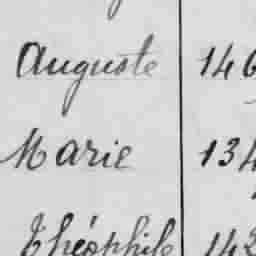 Auguste 146
Marie 134
Théophile 142